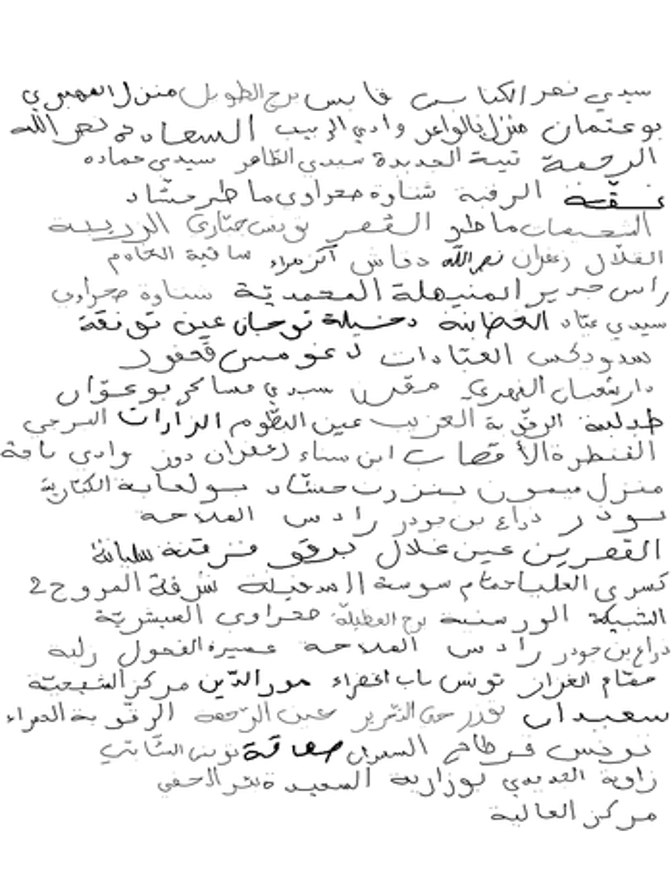 سيدي نصر الكنايس قابس برج الطويل منزل المهيري
بوعثمان منزل بالواعر وادي الزبيب السعادة نصر الله
الرحمة ثنية الحديدة سيدي الظاهر سيدي حمادة
نقّة الرقبة شناوة صحراوي ماطر حشّاد
ماطر القصر تونس الزريبة
الغلال زعفران نصر الله دقاش أكزمراء ساقية الخادم
راس جدير المنيهلة المحمديّة شناوة صحراوي
سيدي عيّاد الخطابة دخيلة توجان عين تونقة
سدودكس العيّادات قحفور
دار شعبان الفهري مقرن سيدي مساكر بوعوّان
طبلبة الرقوبة العزيب عين الظلوم الزارات البرجي
القنطرة الأقصاب ابن سناء زعفران دوز وادي باجة
منزل ميمون بنزرت حشّاد بولعابة الكتارية
بودر ذراع بن جودر رادس الملاحة
القصرين عين غلال برقو فرقنة سليانة
كسرى العليا حمّام سوسة الدخيلة شرفة المروج 2
الشبيكة الورسنية برج العطيلة صحراوي المبشريّة
ذراع بن جودر رادس الملاحة عميرة الفحول زلبة
مقام الغزاز تونس باب الخضراء نور الدّين مركز الشيحيّة
سعيدان بنزرت حي التحرير عين الرّحمة الرقوبة الحمراء
تونس قرطاج السيدان صفاقة تونس
زاوية الجديدي بوزارية السعيدة بئر الحفي
مركز العالية